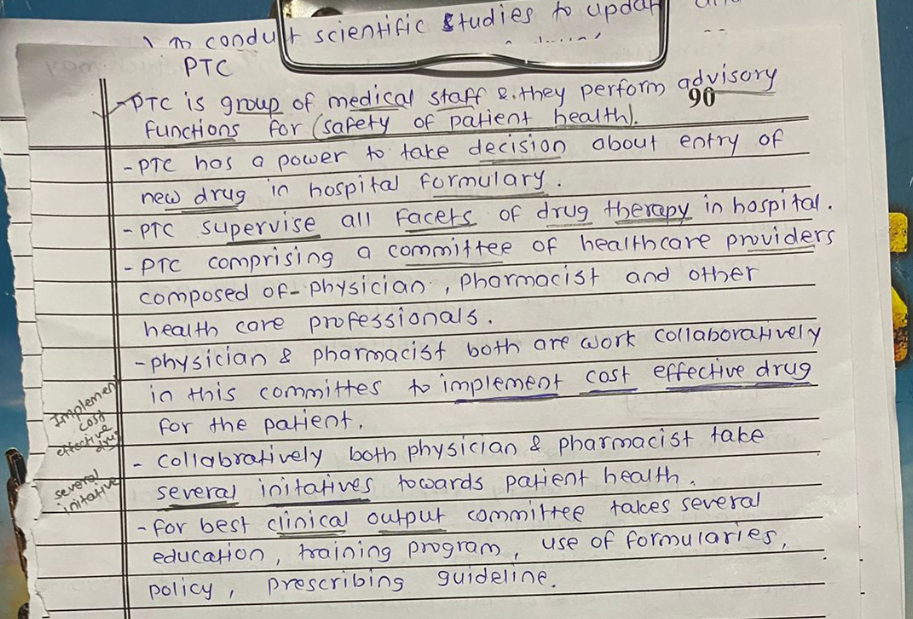 to conduct scientific studies to updat
PTC
- PTC is group of medical staff & they perform advisory
90
functions for (safety of patient health).
- PTC has a power to take decision about entry of
new drug in hospital formulary.
- PTC supervise all facets of drug therapy in hospital.
- PTC comprising a committee of healthcare providers
composed of - physician, pharmacist and other
health care professionals.
- physician & pharmacist both are work collaboratively
in this committes to implement cost effective drug
for the patient.
Implement
cost
effective
drug
- collabratively both physician & pharmacist take
several initatives towards patient health.
several
initative
- for best clinical output committee takes several
education, training program, use of formularies,
policy, prescribing guideline.